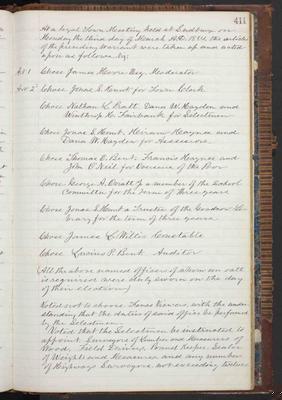 411
At a legal Town Meeting held at Sudbury on
Monday the third day of March A.D. 1884, the articles
of the preceding Warrant were taken up and acted
upon as follows, by:
Art 1 Chose James Moore Esq. Moderator
Art 2 Chose Jonas S. Hunt for Town Clerk
Chose Nathan L. Pratt, Dana W. Hayden and
Winthrop H. Fairbank for Selectmen
Chose Jonas S. Hunt, Hiram Haynes and
Dana W. Hayden for Assessors
Chose Thomas E. Bent, Francis Haynes and
John O'Neil for Overseers of the Poor
Chose George A. a member of the School
Committee for the term of three years
Chose Jonas S. Hunt a Trustee of the Goodnow Li-
brary for the term of three years
Chose James L. Willis Constable
Chose P. Bent Auditor
All the above named officers of whom an oath
is required were duly sworn on the day
of their election
Voted not to choose Fence Viewers, with the under-
standing that the duties of said office be performed
by the Selectmen
Voted that the Selectmen be instructed to
appoint Surveyors of Lumber and Measurers of
Wood, Field Drivers, Pound Keeper, Sealer
of Weights and Measures and any number
of Highway Surveyors not exceeding twelve